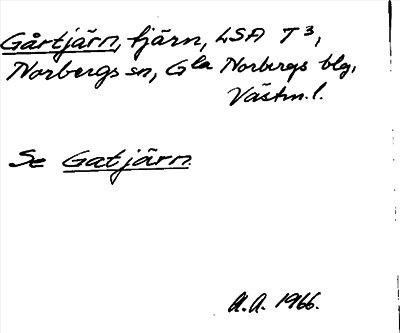 Gårtjärn, tjärn, LSA T³,
Norbergs sn, Gla Norbergs blg,
Västm.l.
Se Gatjärn.
A.A. 1966.